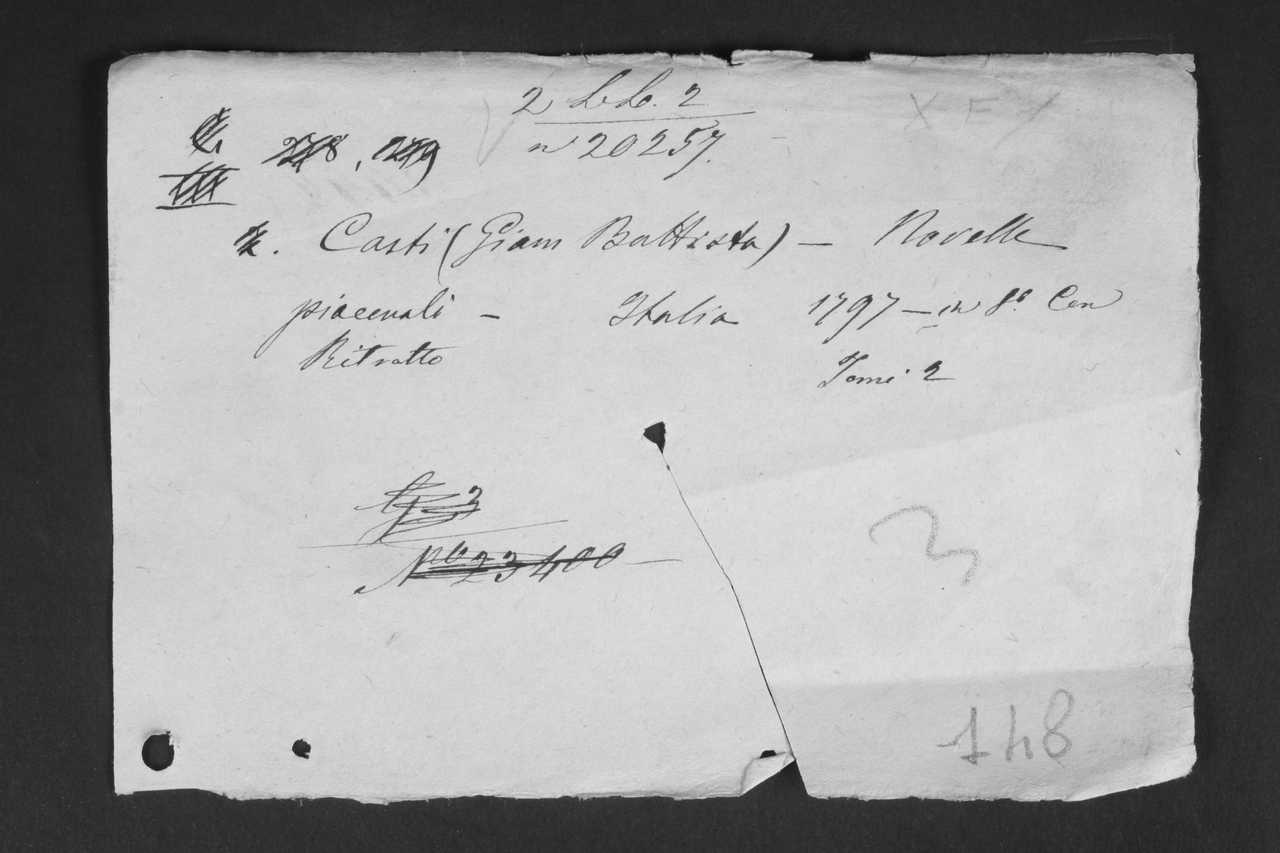 2 LL. 2
n 20257.
278, 279
Casti (Giam Battista) — Novelle
piacevoli — Italia 1797 — in 8.° Con
Ritratto Tomi 2
N.° 23400
3
148